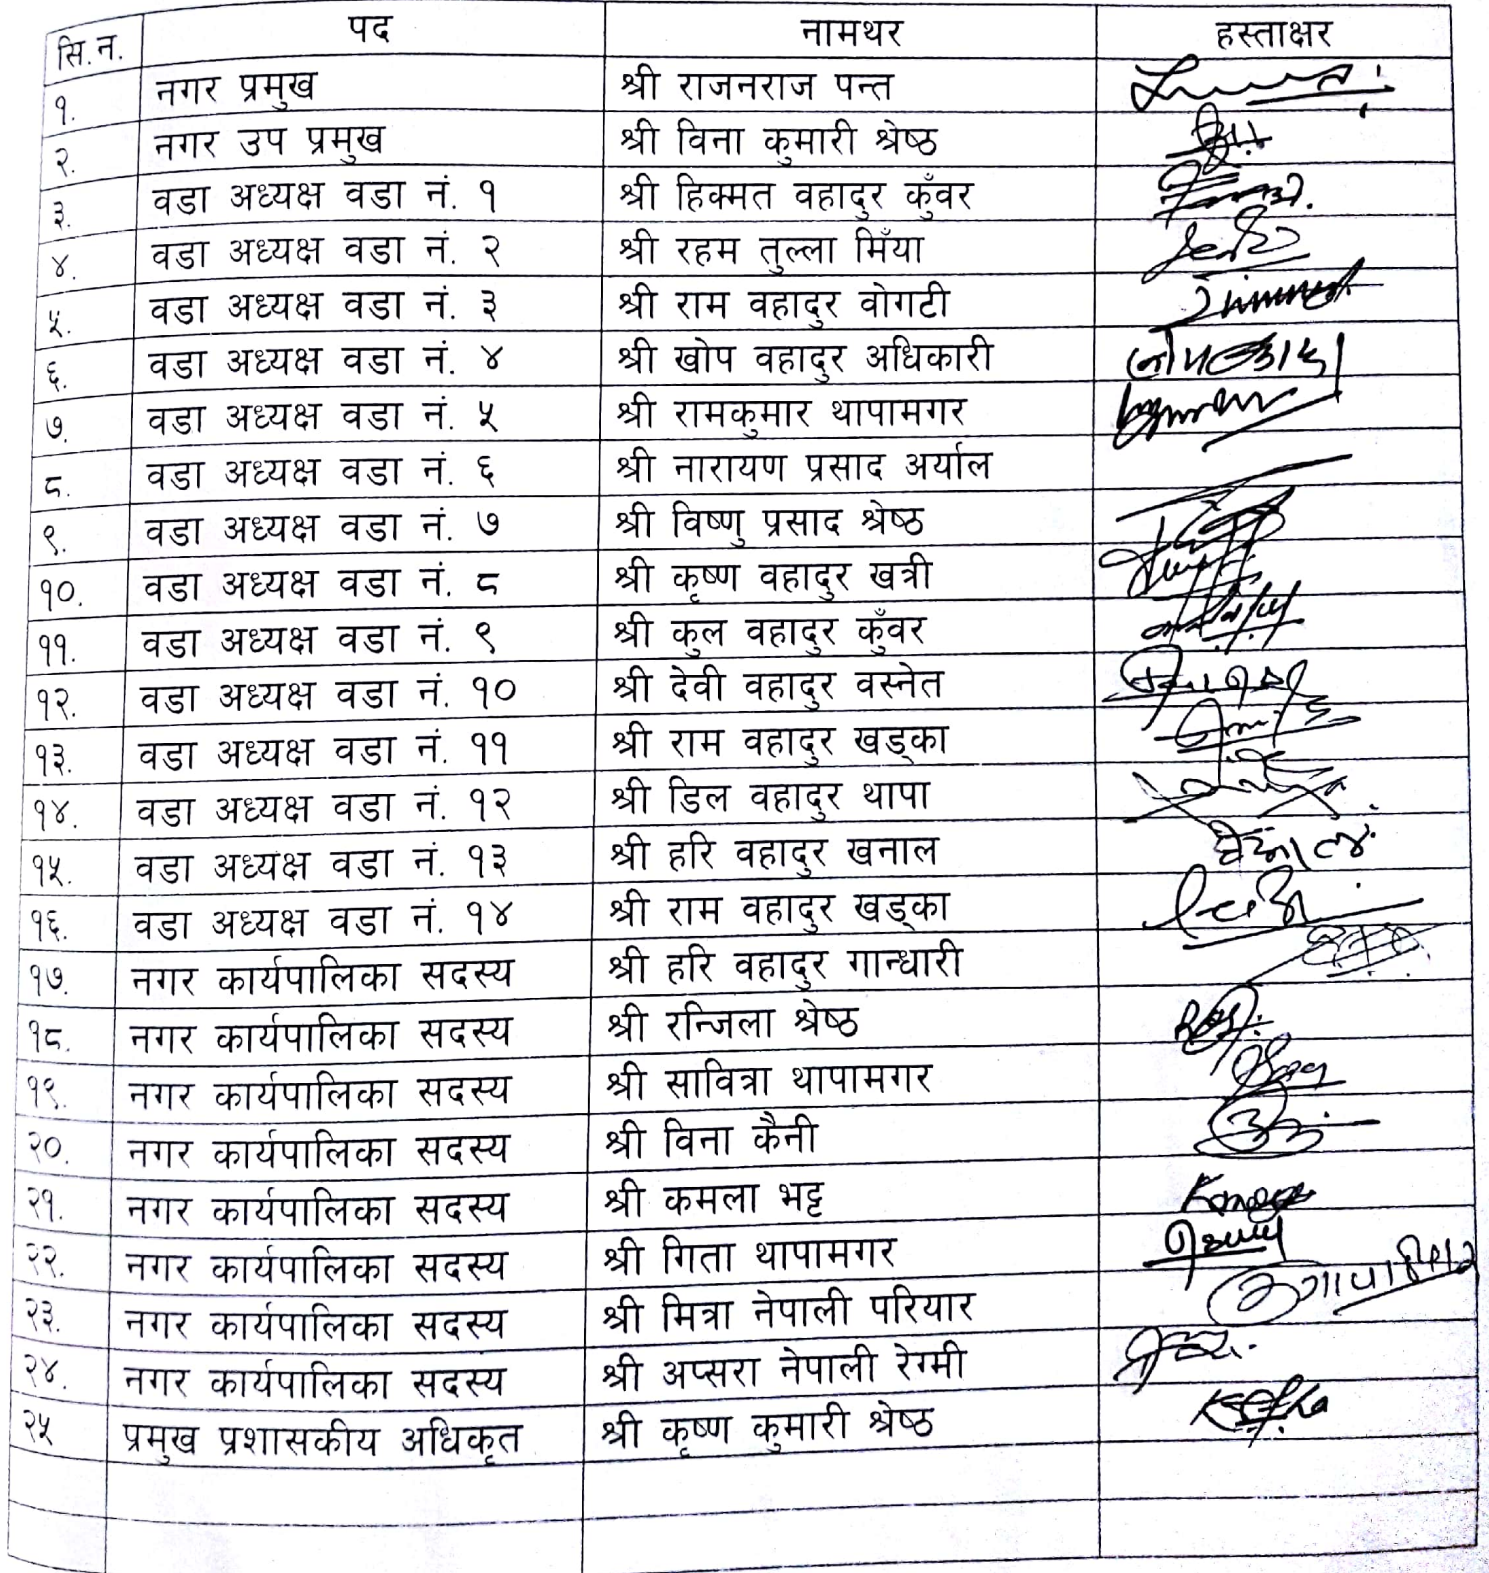 सि.न. पद नामथर हस्ताक्षर
१. नगर प्रमुख श्री राजनराज पन्त
२. नगर उप प्रमुख श्री विना कुमारी श्रेष्ठ
३. वडा अध्यक्ष वडा नं. १ श्री हिक्मत वहादुर कुँवर
४. वडा अध्यक्ष वडा नं. २ श्री रहम तुल्ला मिँया
५. वडा अध्यक्ष वडा नं. ३ श्री राम वहादुर वोगटी
६. वडा अध्यक्ष वडा नं. ४ श्री खोप वहादुर अधिकारी
७. वडा अध्यक्ष वडा नं. ५ श्री रामकुमार थापामगर
८. वडा अध्यक्ष वडा नं. ६ श्री नारायण प्रसाद अर्याल
९. वडा अध्यक्ष वडा नं. ७ श्री विष्णु प्रसाद श्रेष्ठ
१०. वडा अध्यक्ष वडा नं. ८ श्री कृष्ण वहादुर खत्री
११. वडा अध्यक्ष वडा नं. ९ श्री कुल वहादुर कुँवर
१२. वडा अध्यक्ष वडा नं. १० श्री देवी वहादुर वस्नेत
१३. वडा अध्यक्ष वडा नं. ११ श्री राम वहादुर खड्का
१४. वडा अध्यक्ष वडा नं. १२ श्री डिल वहादुर थापा
१५. वडा अध्यक्ष वडा नं. १३ श्री हरि वहादुर खनाल
१६. वडा अध्यक्ष वडा नं. १४ श्री राम वहादुर खड्का
१७. नगर कार्यपालिका सदस्य श्री हरि वहादुर गान्धारी
१८. नगर कार्यपालिका सदस्य श्री रन्जिला श्रेष्ठ
१९. नगर कार्यपालिका सदस्य श्री सावित्रा थापामगर
२०. नगर कार्यपालिका सदस्य श्री विना कैनी
२१. नगर कार्यपालिका सदस्य श्री कमला भट्ट
२२. नगर कार्यपालिका सदस्य श्री गिता थापामगर
२३. नगर कार्यपालिका सदस्य श्री मित्रा नेपाली परियार
२४. नगर कार्यपालिका सदस्य श्री अप्सरा नेपाली रेग्मी
२५ प्रमुख प्रशासकीय अधिकृत श्री कृष्ण कुमारी श्रेष्ठ